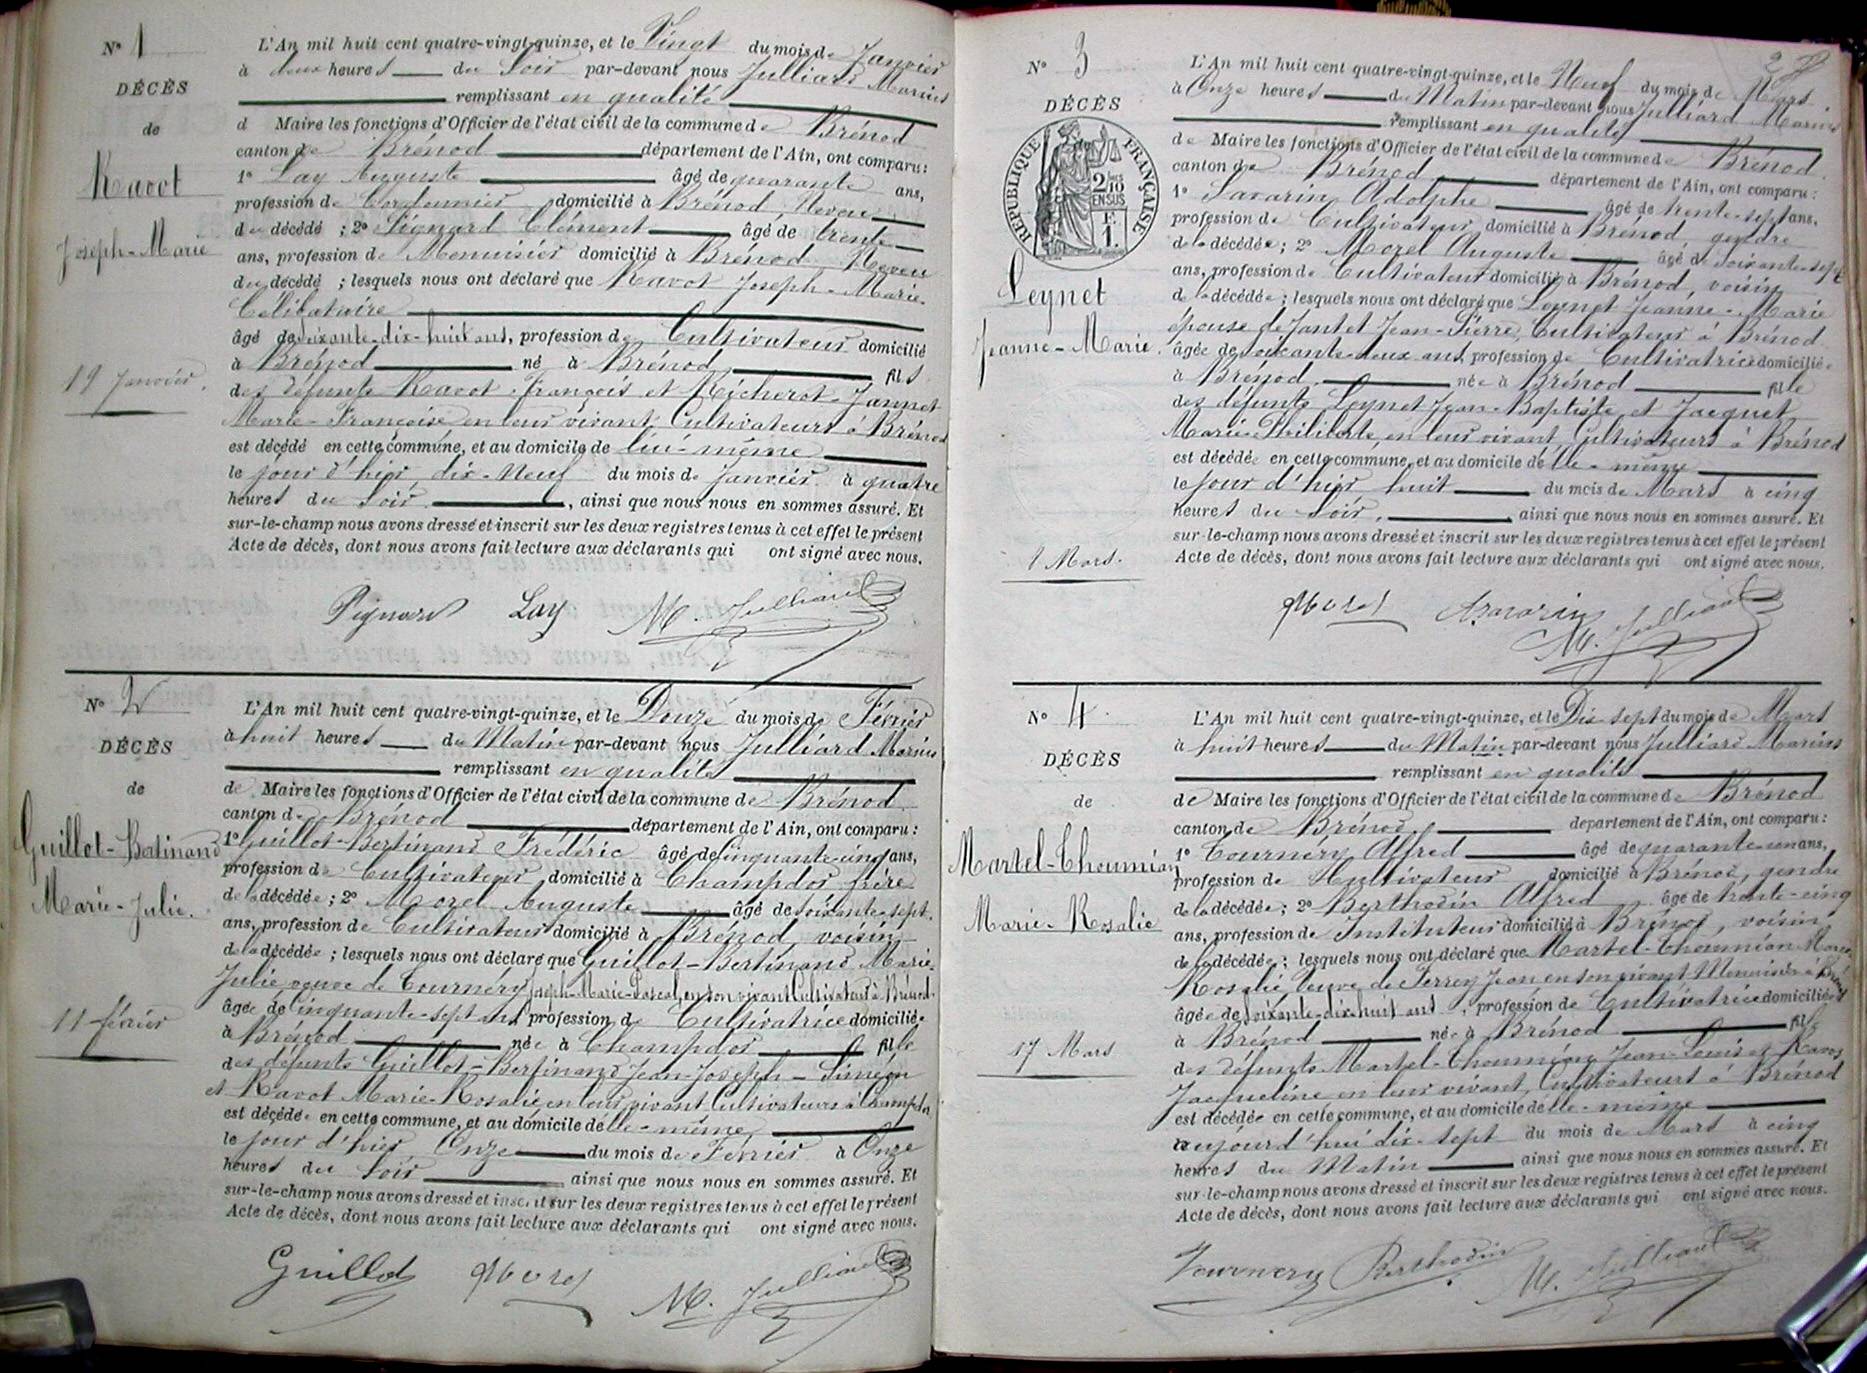 N° 1
DÉCÈS
de
Ravot
Joseph-Marie
19 Janvier.
L'An mil huit cent quatre-vingt-quinze, et le Vingt du mois de Janvier
à deux heures du Soir par-devant nous Julliard Marius
remplissant en qualité
d Maire les fonctions d'Officier de l'état civil de la commune de Brénod
canton de Brénod département de l'Ain, ont comparu:
1° Lay Auguste âgé de quarante ans,
profession de Cordonnier domicilié à Brénod Neveu
du décédé ; 2° Pignard Clément âgé de trente
ans, profession de Menuisier domicilié à Brénod Neveu
du décédé ; lesquels nous ont déclaré que Ravot Joseph-Marie
Célibataire
âgé de soixante-dix-huit ans, profession de Cultivateur domicilié
à Brénod né à Brénod fils
des défunts Ravot François et Jannet
Marie-Françoise en leur vivant Cultivateurs à Brénod
est décédé en cette commune, et au domicile de lui-même
le jour d'hier dix-Neuf du mois de Janvier à quatre
heures du Soir, ainsi que nous nous en sommes assuré. Et
sur-le-champ nous avons dressé et inscrit sur les deux registres tenus à cet effet le présent
Acte de décès, dont nous avons fait lecture aux déclarants qui ont signé avec nous.
Pignard Lay M. Julliard
N° 2
DÉCÈS
de
Guillot-Bertinand
Marie-Julie.
11 février
L'An mil huit cent quatre-vingt-quinze, et le Douze du mois de Février
à huit heures du Matin par-devant nous Julliard Marius
remplissant en qualité
de Maire les fonctions d'Officier de l'état civil de la commune de Brénod
canton de Brénod département de l'Ain, ont comparu:
1° Guillot-Bertinand Frédéric âgé de cinquante-cinq ans,
profession de Cultivateur domicilié à Champdor frère
de la décédée ; 2° Morel Auguste âgé de soixante-sept
ans, profession de Cultivateur domicilié à Brénod voisin
de la décédée ; lesquels nous ont déclaré que Guillot-Bertinand Marie-
Julie veuve de Tournéry Joseph-Marie-Pascal, en son vivant Cultivateur à Brénod
âgée de cinquante-sept ans profession de Cultivatrice domiciliée
à Brénod née à Champdor fille
des défunts Guillot-Bertinand Jean-Joseph-Siméon
et Ravot Marie-Rosalie en leur vivant Cultivateurs à Champdor
est décédée en cette commune, et au domicile d'elle-même
le jour d'hier Onze du mois de Février à Onze
heures du Soir ainsi que nous nous en sommes assuré. Et
sur-le-champ nous avons dressé et inscrit sur les deux registres tenus à cet effet le présent
Acte de décès, dont nous avons fait lecture aux déclarants qui ont signé avec nous.
Guillot Morel M. Julliard
2
N° 3
DÉCÈS
RÉPUBLIQUE FRANÇAISE
2/10 EN SUS
Leynet
Jeanne-Marie.
8 Mars.
L'An mil huit cent quatre-vingt-quinze, et le Neuf du mois de Mars
à Onze heures du Matin par-devant nous Julliard Marius
remplissant en qualité
de Maire les fonctions d'Officier de l'état civil de la commune de Brénod
canton de Brénod département de l'Ain, ont comparu:
1° Savarin Adolphe âgé de trente-sept ans,
profession de Cultivateur domicilié à Brénod, gendre
de la décédée ; 2° Morel Auguste âgé de soixante-sept
ans, profession de Cultivateur domicilié à Brénod, voisin
de la décédée ; lesquels nous ont déclaré que Leynet Jeanne-Marie
épouse de Jantet Jean-Pierre, Cultivateur à Brénod
âgée de soixante-deux ans, profession de Cultivatrice domiciliée
à Brénod née à Brénod fille
des défunts Leynet Jean-Baptiste et Jacquet
Marie-Philiberte, en leur vivant, Cultivateurs à Brénod
est décédée en cette commune, et au domicile d'elle-même
le jour d'hier huit du mois de Mars à cinq
heures du Soir, ainsi que nous nous en sommes assuré. Et
sur-le-champ nous avons dressé et inscrit sur les deux registres tenus à cet effet le présent
Acte de décès, dont nous avons fait lecture aux déclarants qui ont signé avec nous.
Morel Savarin
M. Julliard
N° 4
DÉCÈS
de
Martel-Thoumian
Marie-Rosalie
17 Mars
L'An mil huit cent quatre-vingt-quinze, et le Dix-sept du mois de Mars
à huit heures du Matin par-devant nous Julliard Marius
remplissant en qualité
de Maire les fonctions d'Officier de l'état civil de la commune de Brénod
canton de Brénod département de l'Ain, ont comparu:
1° Tournéry Alfred âgé de quarante-un ans,
profession de Cultivateur domicilié à Brénod, gendre
de la décédée ; 2° Berthodin Alfred âgé de trente-cinq
ans, profession de Instituteur domicilié à Brénod, voisin
de la décédée ; lesquels nous ont déclaré que Martel-Thoumian Marie-
Rosalie Veuve de Jean en son vivant Menuisier à Brénod
âgée de soixante-dix-huit ans, profession de Cultivatrice domiciliée
à Brénod née à Brénod fille
des défunts Martel-Thoumian Jean-Louis et Ravot
Jacqueline en leur vivant, Cultivateurs à Brénod
est décédée en cette commune, et au domicile d'elle-même
aujourd'hui dix-sept du mois de Mars à cinq
heures du Matin ainsi que nous nous en sommes assuré. Et
sur-le-champ nous avons dressé et inscrit sur les deux registres tenus à cet effet le présent
Acte de décès, dont nous avons fait lecture aux déclarants qui ont signé avec nous.
Tournery Berthodin M. Julliard